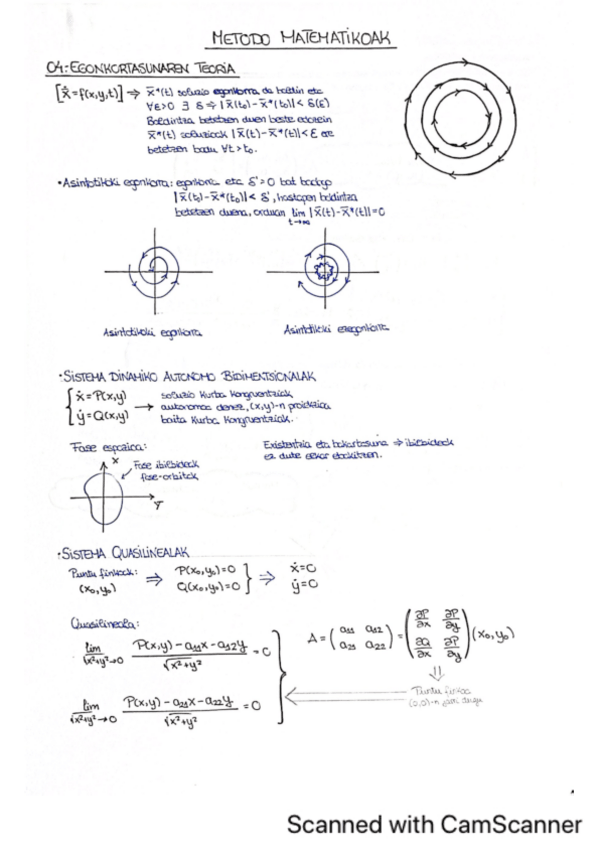 METODO MATEMATIKOAK
04: EGONKORTASUNAREN TEORIA
[ẋ=f(x,y,t)] ⇒ x̄*(t) soluzio egonkorra da baldin eta
∀ε>0 ∃ δ ⇒ |x̄(t₀)-x̄*(t₀)|< δ(ε)
Baldintza betetzen duen beste edozein
x̄*(t) soluziook |x̄(t)-x̄*(t)|<ε ere
betetzen badu ∀t>t₀.
• Asintotikoki egonkorra: egonkorra eta δ'>0 bat badago
|x̄(t₀)-x̄*(t₀)| < δ', hastapen baldintza
betetzen duena, orduan lim |x̄(t)-x̄*(t)|=0
t→∞
Asintotikoki egonkorra
Asintotikoki ezegonkorra
• SISTEMA DINAMIKO AUTONOMO BIDIMENTSIONALAK
{ẋ=P(x,y)
ẏ=Q(x,y) → soluzio kurba kongruentziak,
autonomoa denez, (x,y)-n proiekzioa
baita kurba kongruentziak.
Fase espazioa:
Existentzia eta bakartasuna ⇒ ibilbideek
ez dute elkar ebakitzen.
x
Fase ibilbideak
fase-orbitak
Y
• SISTEMA QUASILINEALAK
Puntu finkoak:
(x₀,y₀) ⇒ P(x₀,y₀)=0
Q(x₀,y₀)=0 } ⇒ ẋ=0
ẏ=0
Quasilineala:
lim √x²+y²→0 P(x,y)-a₁₁x-a₁₂y / √x²+y² = 0
A = (a₁₁ a₁₂ a₂₁ a₂₂) = (∂P/∂x ∂P/∂y ∂Q/∂x ∂P/∂y)(x₀,y₀)
⇓
Puntu finkoa
(0,0)-n jarri dugu
lim √x²+y²→0 P(x,y)-a₂₁x-a₂₂y / √x²+y² = 0
Scanned with CamScanner